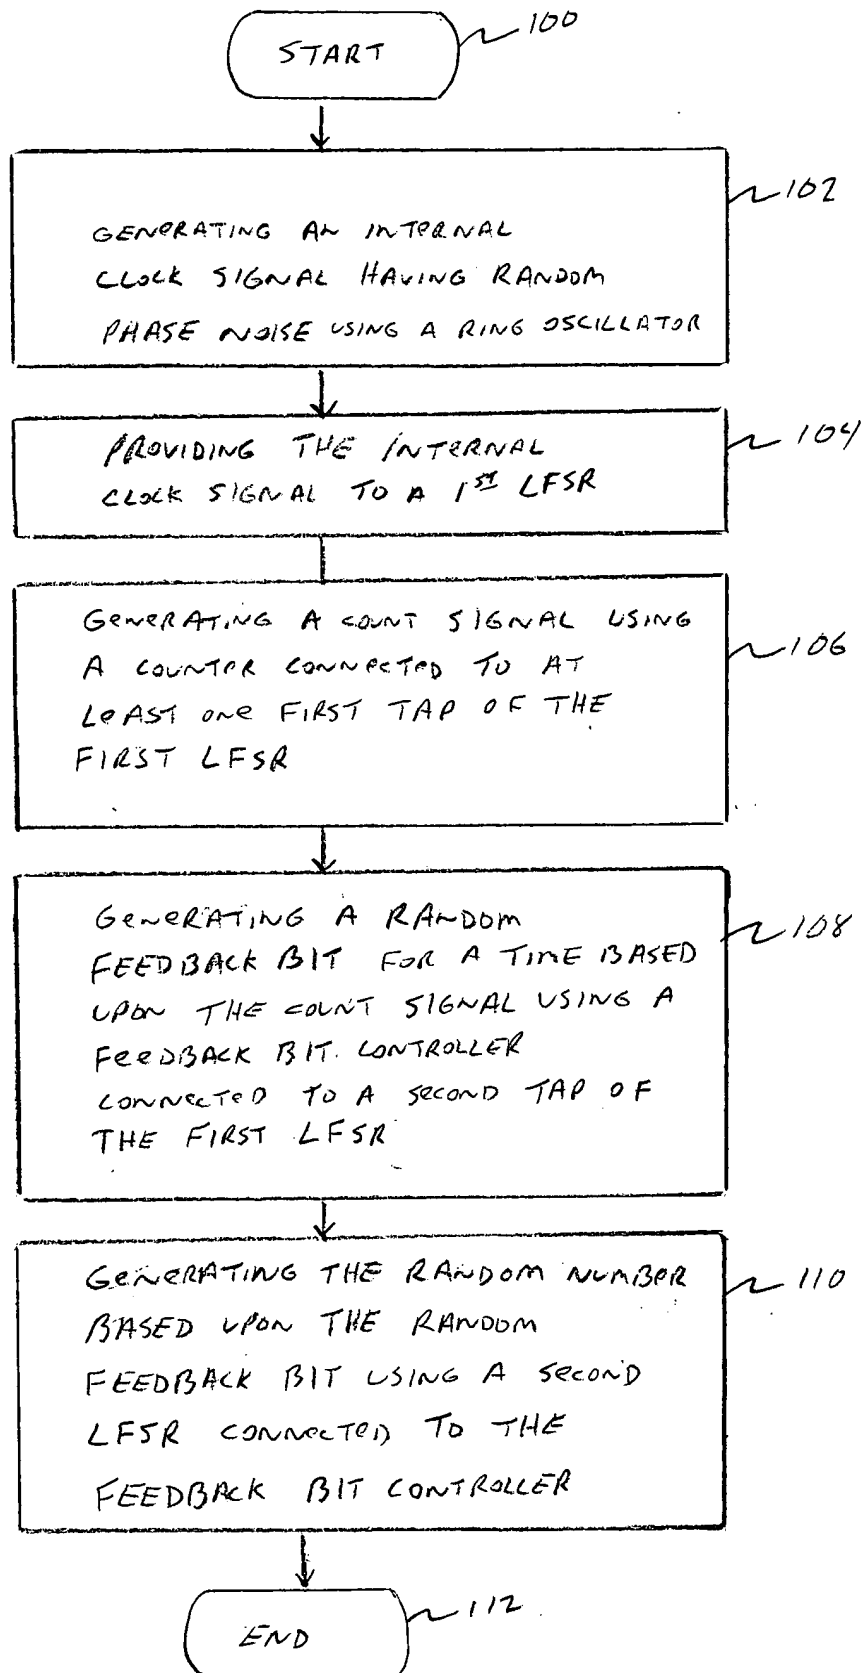 START
100
GENERATING AN INTERNAL
CLOCK SIGNAL HAVING RANDOM
PHASE NOISE USING A RING OSCILLATOR
102
PROVIDING THE INTERNAL
CLOCK SIGNAL TO A 1ST LFSR
104
GENERATING A COUNT SIGNAL USING
A COUNTER CONNECTED TO AT
LEAST ONE FIRST TAP OF THE
FIRST LFSR
106
GENERATING A RANDOM
FEEDBACK BIT FOR A TIME BASED
UPON THE COUNT SIGNAL USING A
FEEDBACK BIT CONTROLLER
CONNECTED TO A SECOND TAP OF
THE FIRST LFSR
108
GENERATING THE RANDOM NUMBER
BASED UPON THE RANDOM
FEEDBACK BIT USING A SECOND
LFSR CONNECTED TO THE
FEEDBACK BIT CONTROLLER
110
END
112